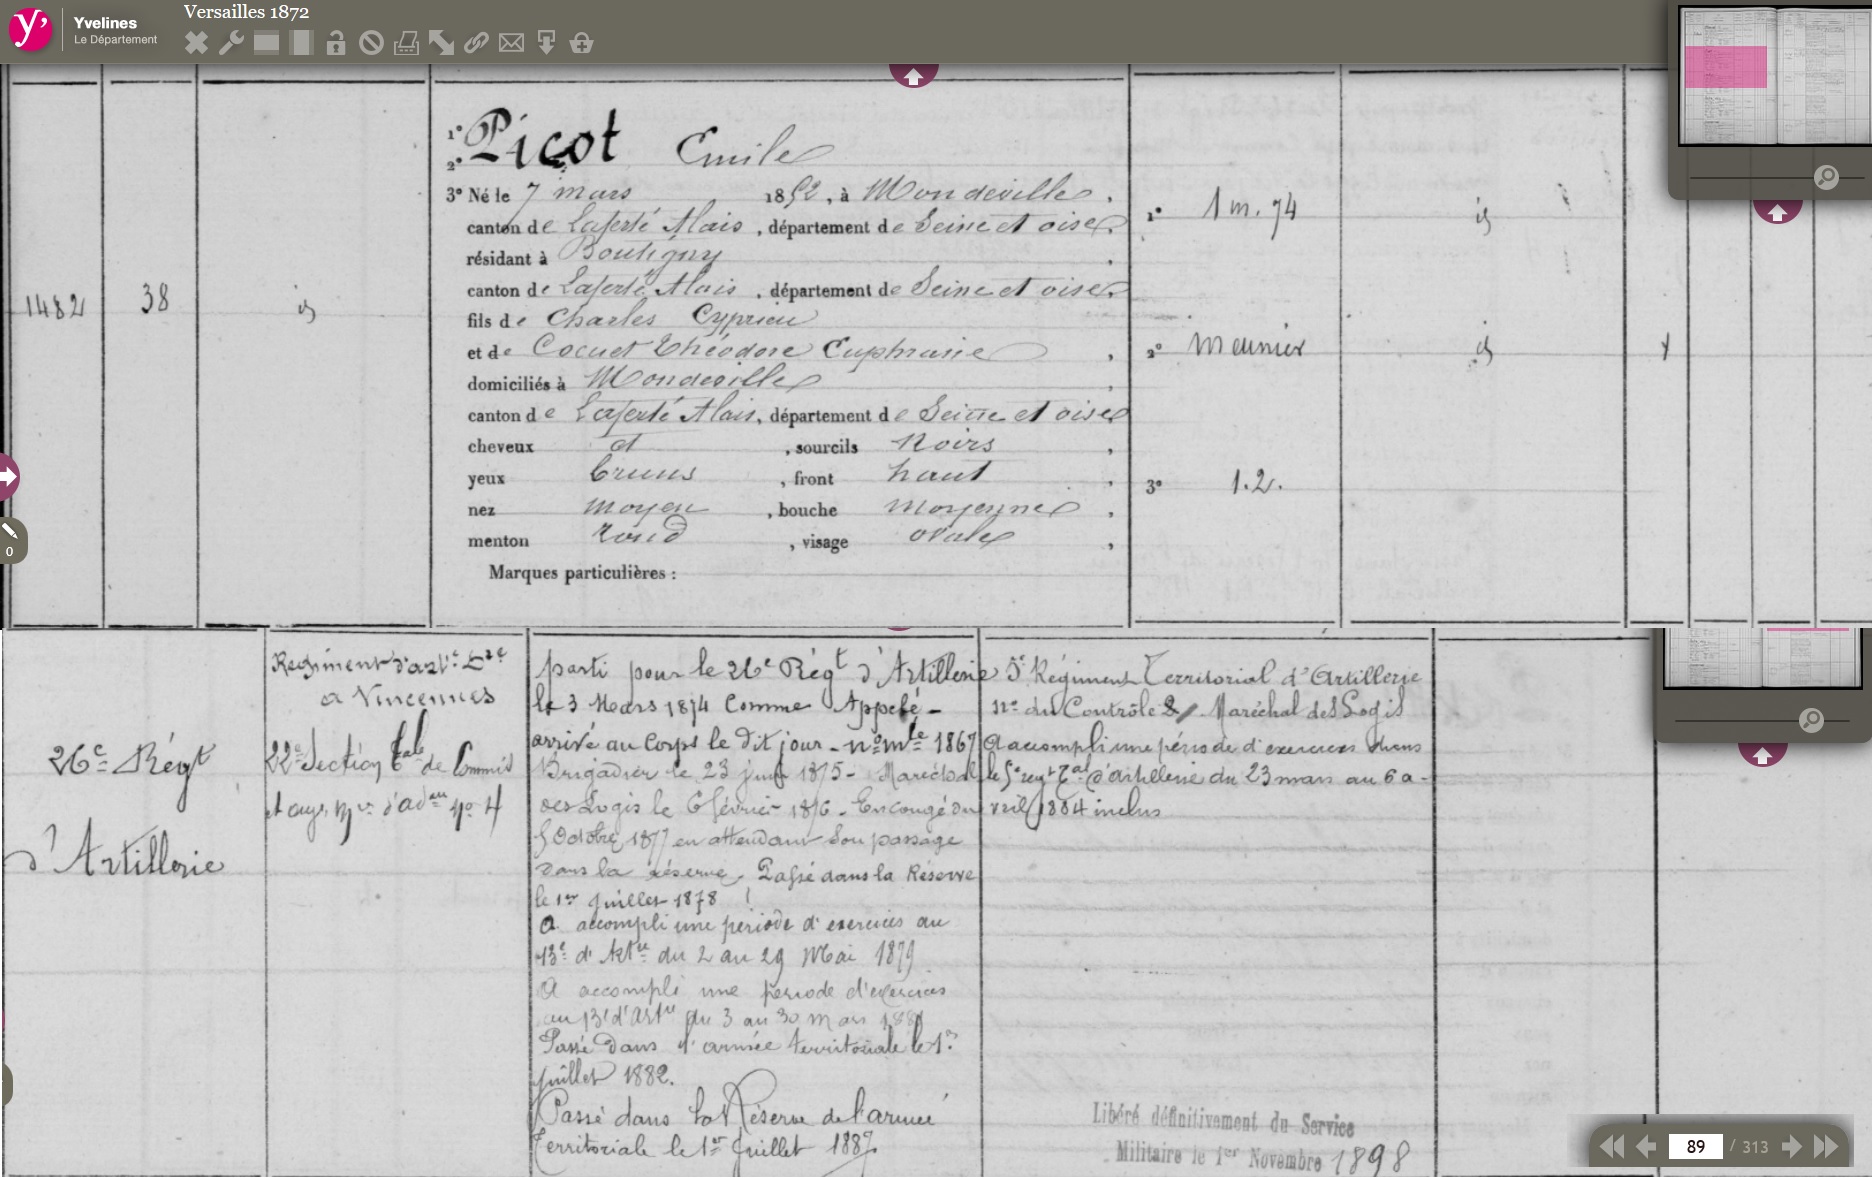 Versailles 1872
Yvelines
Le Département
1482
38
id
1°
2°
Picot Emile
3° Né le 7 mars 1852, à Mondeville,
canton de Laferté Alais, département de Seine et oise,
résidant à Boutigny,
canton de Laferté Alais, département de Seine et oise,
fils de Charles Cyprien
et de Cocuet Théodore Euphrasie,
domiciliés à Mondeville,
canton de Laferté Alais, département de Seine et oise
cheveux et, sourcils noirs,
yeux bruns, front haut,
nez moyen, bouche moyenne,
menton rond, visage ovale,
Marques particulières :
1° 1 m. 74 id
2° Meunier id
3° 1.2.
0
26e Régt
d'Artillerie
Régiment d'arti
a Vincennes
22e Section tale de Commis
et d'adon no 4
parti pour le 26e Régt d'Artillerie
le 3 Mars 1874 Comme Appelé -
arrivé au Corps le dit jour - no mle 1867
Brigadier le 23 juin 1875 - Maréchal
des Logis le 6 février 1876 - En congé du
5 Octobre 1877 en attendant son passage
dans la réserve. Passé dans la Réserve
le 1er Juillet 1878
A accompli une période d'exercices au
13e d'Artie du 2 au 29 Mai 1879
A accompli une période d'exercices
au 13e d'Artie du 3 au 30 mars 1881
Passé dans l'armée territoriale le 1er
juillet 1882.
Passé dans la Réserve de l'armée
Territoriale le 1er Juillet 1887
5e Régiment Territorial d'Artillerie
no du Contrôle Maréchal des Logis
A accompli une période d'exercices dans
le 5e regt Tal d'artillerie du 23 mars au 6 a-
vril 1884 inclus
Libéré définitivement du Service
Militaire le 1er Novembre 1898
89 / 313